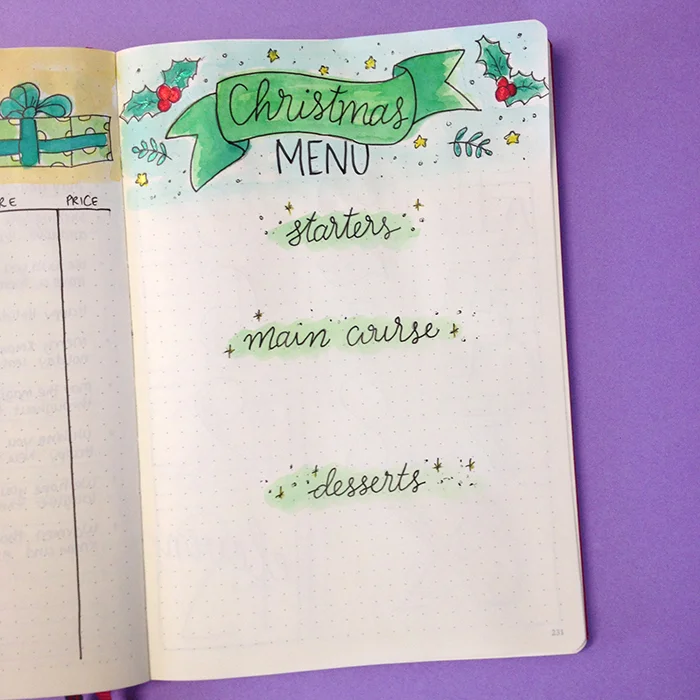 PRICE
Christmas
MENU
starters
main course
desserts